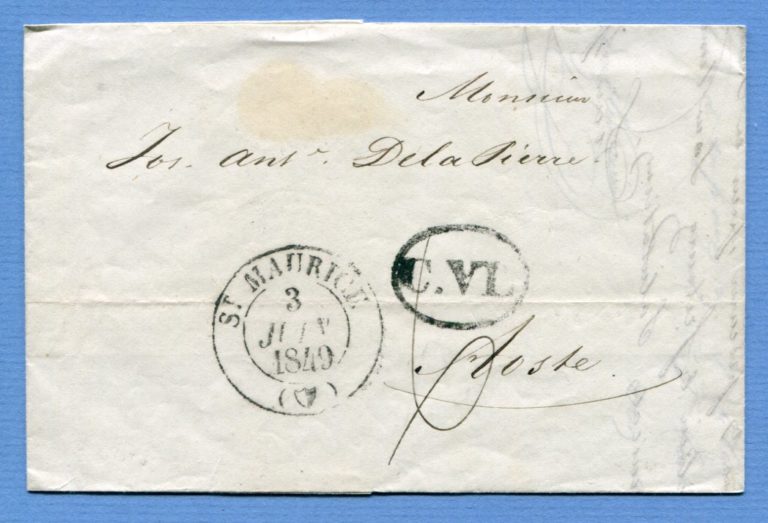 Monsieur
Jos. Ant.ᵉ DelaPierre.
C.VL
ST. MAURICE
3
JUIN
1849
Aoste